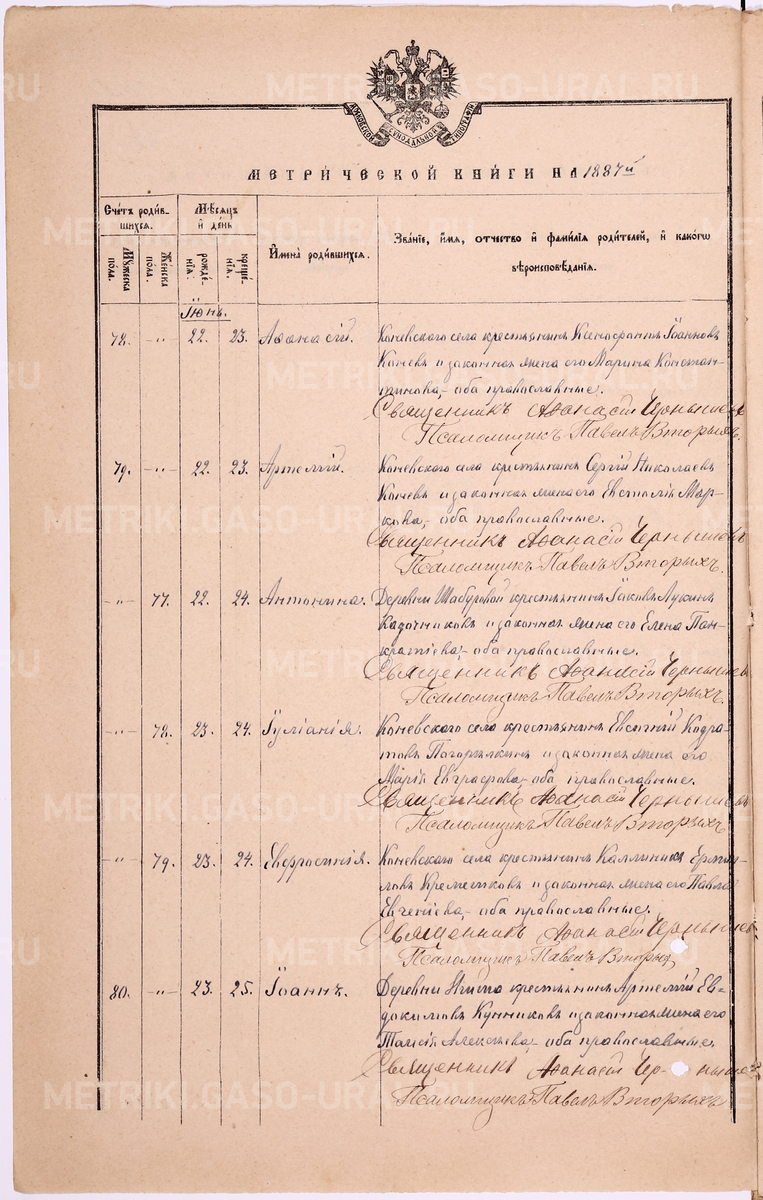 МЕТРИЧЕСКОЙ КНИГИ НА 1887й
Счетъ родившихся.
Мѣсяцъ и день
Имена родившихся.
Званіе, имя, отчество и фамилія родителей, и какогω вѣроисповѣданія.
Мужеска пола.
Женска пола.
рожденія:
крещенія.
Іюнь.
78. -„- 22. 23. Аѳанасій. Коневского села крестьянинъ Ксенофонтъ Іоанновъ
Коневъ и законная жена его Марина Констан-
тинова, - оба православные.
Священникъ Аѳанасій Чернышевъ
Псаломщикъ Павелъ Вторыхъ.
79. -„- 22. 23. Артемій. Коневского села крестьянинъ Сергій Николаевъ
Коневъ и законная жена его Евстолія Мар-
кова, - оба православные.
Священникъ Аѳанасій Чернышевъ
Псаломщикъ Павелъ Вторыхъ.
-„- 77. 22. 24. Антонина. Деревни Шабуровой крестьянинъ Іаковъ Лукинъ
Казочниковъ и законная жена его Елена Пан-
кратіева, - оба православные.
Священникъ Аѳанасій Чернышевъ
Псаломщикъ Павелъ Вторыхъ.
-„- 78. 23. 24. Іуліанія. Коневского села крестьянинъ Евсигній Кодра-
товъ Погорѣлкинъ и законная жена его
Марія Евграфова, - оба православные.
Священникъ Аѳанасій Чернышевъ
Псаломщикъ Павелъ Вторыхъ.
-„- 79. 23. 24. Евфросинія. Коневского села крестьянинъ Каллиникъ Ерми-
ловъ и законная жена его Павла
Евгеніева, - оба православные.
Священникъ Аѳанасій Чернышевъ
Псаломщикъ Павелъ Вторыхъ
80. -„- 23. 25. Іоаннъ. Деревни крестьянинъ Артемій Ев-
докимовъ Кунниковъ и законная жена его
Таисія Алексѣева, - оба православные.
Священникъ Аѳанасій Чернышевъ
Псаломщикъ Павелъ Вторыхъ
METRIKI.GASO-URAL.RU